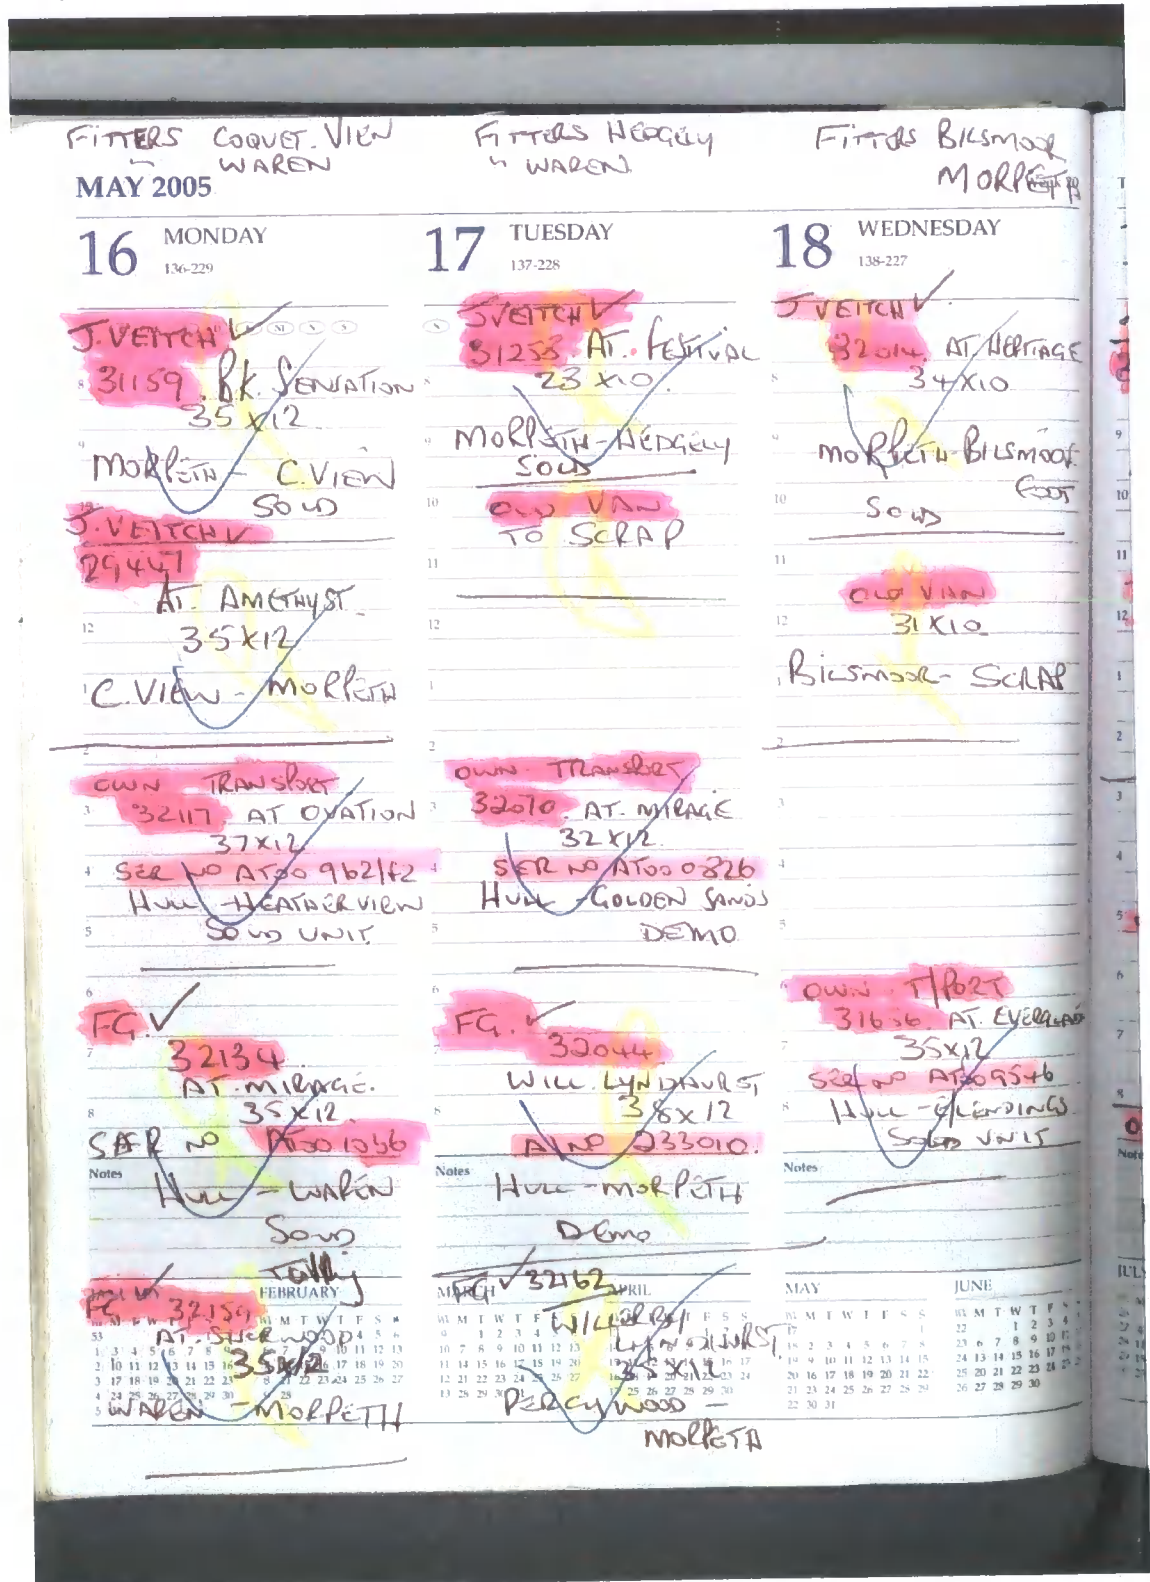 FITTERS COQUET. VIEW
" WAREN
FITTERS HEDGELY
" WAREN.
FITTERS BILSMOOR
MORPETH
MAY 2005
16 MONDAY
136-229
J. VEITCH
31159. BK. SENSATION
35 x 12
MORPETH - C. VIEW
SOLD
J. VEITCH
29447
AT. AMETHYST
35 x 12
C. VIEW - MORPETH
OWN TRANSPORT
32117. AT OVATION
37 x 12
SER NO AT00 962/f2
HULL - HEATHERVIEW
SOLD UNIT.
FG.
32134
AT. MIRAGE.
35 x 12
SER NO AT001056
Notes
HULL - WAREN
SOLD
FG 32159
FEBRUARY
AT. SHERWOOD
35 x 12
WAREN - MORPETH
17 TUESDAY
137-228
J VEITCH
31253. AT. FESTIVAL
23 x 10.
MORPETH - HEDGELY
SOLD
OLD VAN
TO SCRAP
OWN TRANSPORT
32070. AT. MIRAGE
32 x 12.
SER NO AT00 0826
HULL - GOLDEN SANDS
DEMO
FG.
32044
WILL. LYNDHURST
38 x 12
A/NO 233010.
Notes
HULL - MORPETH
DEMO
FG 32162
MARCH APRIL
WILLERBY
LYNDHURST
35 x 12
PERCY WOOD -
MORPETH
18 WEDNESDAY
138-227
J VEITCH
32014. AT. HERITAGE
34 x 10
MORPETH - BILSMOOR
FOOT
SOLD
OLD VAN
31 x 10
BILSMOOR - SCRAP
OWN T/PORT
31656. AT. EVERGLADE
35 x 12
SER NO AT009546
HULL - GLENDINGS
SOLD UNIT
Notes
MAY JUNE